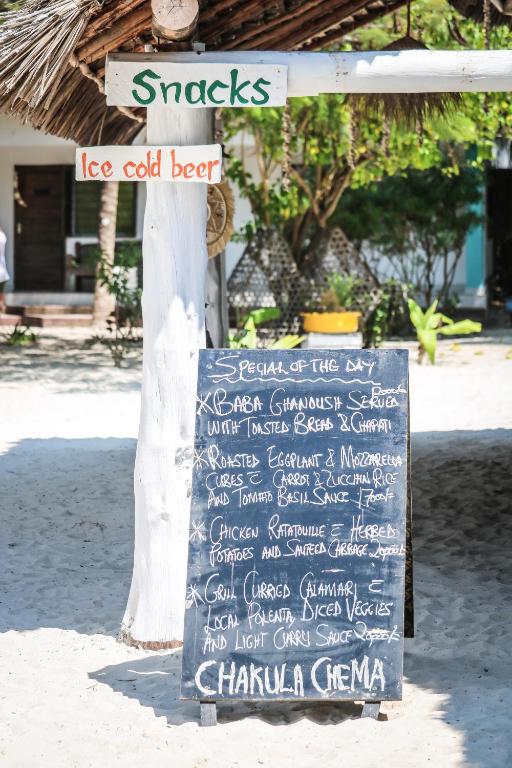 Snacks
Ice cold beer
SPECIAL OF THE DAY
BABA GHANOUSH SERVED
WITH TOASTED BREAD & CHAPATI
ROASTED EGGPLANT & MOZZARELLA
CUBES C CARROT & ZUCCHINI RICE
AND TOMATO BASIL SAUCE 17000/-
CHICKEN RATATOUILLE C HERBED
POTATOES AND SAUTEED CABBAGE
GRILL CURRIED CALAMARI C
LOCAL POLENTA, DICED VEGGIES
AND LIGHT CURRY SAUCE
CHAKULA CHEMA